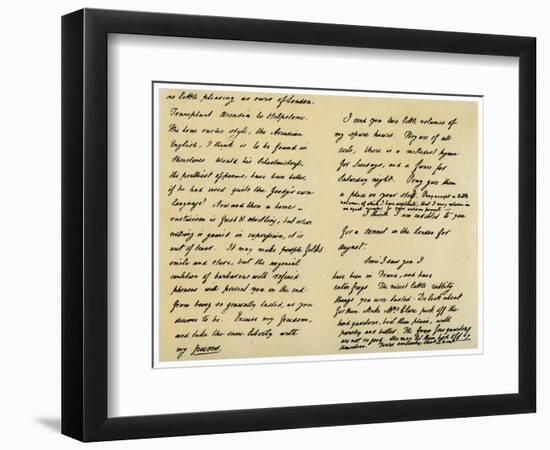 as little pleasing as ours of London.
Transplant Arcadia to Helpstone.
The true rustic style, the Arcadian
English, I think is to be found in
Shenstones. Would his Schoolmistress,
the prettiest of poems, have been better,
if he had used quite the Goody's own
language? Now and then a home-
rusticism is fresh & startling, but where
nothing is gained in expression, it is
out of tenor. It may make people folks
smile and stare, but the ungenial
coalition of barbarous with refined
phrases will prevent you in the end
from being so generally tasted, as you
deserve to be. Excuse my freedom,
and take the same liberty with
my puns.
I send you two little volumes of
my spare hours. They are of all
sorts, there is a methodist hymn
for Sundays, and a farce for
Saturday night. Pray give them
a place on your shelf. Pray accept a little
volume, of which I have duplicate, that I may return in
an equal number to your welcome presents
I think I am indebted to you
for a sonnet in the London for
August.
Since I saw you I
have been in France, and have
eaten frogs. The nicest little rabbity
things you ever tasted. Do look about
for them. Make Mrs Clare pick off the
hind quarters, boil them plain, with
parsley and butter. The fore quarters
are not so good. She may let them hop off by
themselves. Yours sincerely,